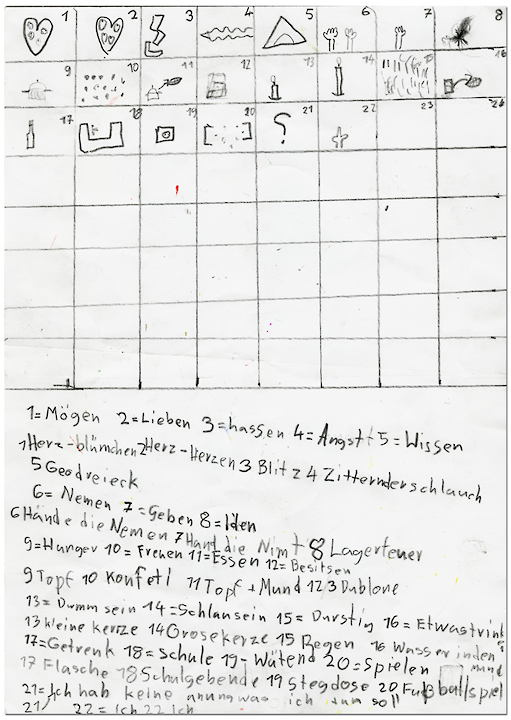 1 2 3 4 5 6 7 8
9 10 11 12 13 14 15 16
17 18 19 20 21 22 23 24
1=Mögen 2=Lieben 3=hassen 4=Angst 5=Wissen
1Herz-blümchen 2Herz-Herzen 3 Blitz 4 Zitternderschlauch
5 Geodreieck
6= Nemen 7=Geben 8=Iden
6 Hände die Nemen 7 Hand die Nimt 8 Lagerfeuer
9=Hunger 10= Freuen 11=Essen 12=Besitsen
9 Topf 10 Konfeti 11 Topf + Mund 12 3 Dublone
13= Dumm sein 14=Schlausein 15= Durstig 16= Etwastrink
13 kleine kerze 14 Grosekerze 15 Regen 16 Wasser inden Mund
17=Getrenk 18=Schule 19-Wütend 20=Spielen
17 Flasche 18 Schulgebende 19 Stegdose 20 Fußballspiel
21=Ich hab keine anung was ich tun soll
21/ 22=Ich 22 Ich